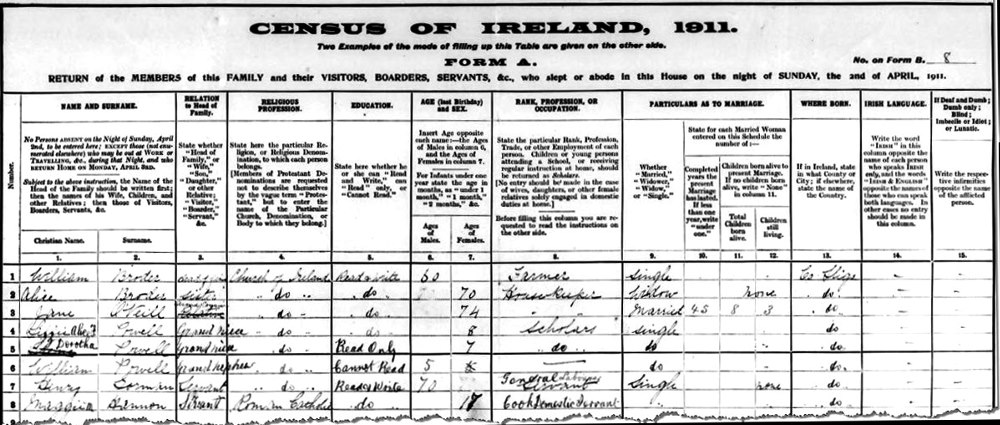 CENSUS OF IRELAND, 1911.
Two Examples of the mode of filling up this Table are given on the other side.
FORM A.
No. on Form B. 8
RETURN of the MEMBERS of this FAMILY and their VISITORS, BOARDERS, SERVANTS, &c., who slept or abode in this House on the night of SUNDAY, the 2nd of APRIL, 1911.
Number.
NAME AND SURNAME.
No Persons ABSENT on the Night of Sunday, April 2nd, to be entered here; EXCEPT those (not enumerated elsewhere) who may be out at WORK or TRAVELLING, &c., during that Night, and who RETURN HOME ON MONDAY, APRIL 3RD.
Subject to the above instruction, the Name of the Head of the Family should be written first; then the names of his Wife, Children, and other Relatives; then those of Visitors, Boarders, Servants, &c.
Christian Name.
Surname.
RELATION to Head of Family.
State whether "Head of Family," or "Wife," "Son," "Daughter," or other Relative, "Visitor," "Boarder," "Servant," &c.
RELIGIOUS PROFESSION.
State here the particular Religion, or Religious Denomination, to which each person belongs.
[Members of Protestant Denominations are requested not to describe themselves by the vague term "Protestant," but to enter the name of the Particular Church, Denomination, or Body to which they belong.]
EDUCATION.
State here whether he or she can "Read and Write," can "Read" only, or "Cannot Read."
AGE (last Birthday) and SEX.
Insert Age opposite each name:—the Ages of Males in column 6, and the Ages of Females in column 7.
For Infants under one year state the age in months, as "under 1 month," "1 month," "2 months," &c.
Ages of Males.
Ages of Females.
RANK, PROFESSION, OR OCCUPATION.
State the particular Rank, Profession, Trade, or other Employment of each person. Children or young persons attending a School, or receiving regular instruction at home, should be returned as Scholars.
[No entry should be made in the case of wives, daughters, or other female relatives solely engaged in domestic duties at home.]
Before filling this column you are requested to read the instructions on the other side.
PARTICULARS AS TO MARRIAGE.
Whether "Married," "Widower," "Widow," or "Single."
State for each Married Woman entered on this Schedule the number of:—
Completed years the present Marriage has lasted. If less than one year, write "under one."
Children born alive to present Marriage. If no children born alive, write "None" in column 11.
Total Children born alive.
Children still living.
WHERE BORN.
If in Ireland, state in what County or City; if elsewhere, state the name of the Country.
IRISH LANGUAGE.
Write the word "IRISH" in this column opposite the name of each person who speaks IRISH only, and the words "IRISH & ENGLISH" opposite the names of those who can speak both languages. In other cases no entry should be made in this column.
If Deaf and Dumb; Dumb only; Blind; Imbecile or Idiot; or Lunatic.
Write the respective infirmities opposite the name of the afflicted person.
1. 2. 3. 4. 5. 6. 7. 8. 9. 10. 11. 12. 13. 14. 15.
1 William Broder Church of Ireland Read & Write 60 Farmer Single Co Sligo
2 Alice Broder Sister do do 70 Housekeeper Widow none do
3 Jane do do 74 Married 45 8 3 do
4 Grand niece do do 8 Scholars Single do
5 Dorotha Powell Grand niece do Read Only 7 do do do
6 William Powell Grand nephew do Cannot Read 5 do do
7 Henry Gorman Servant do Read & Write 70 General Servant Single none do
8 Hannon Servant Roman Catholic do 17 Cook Domestic Servant do